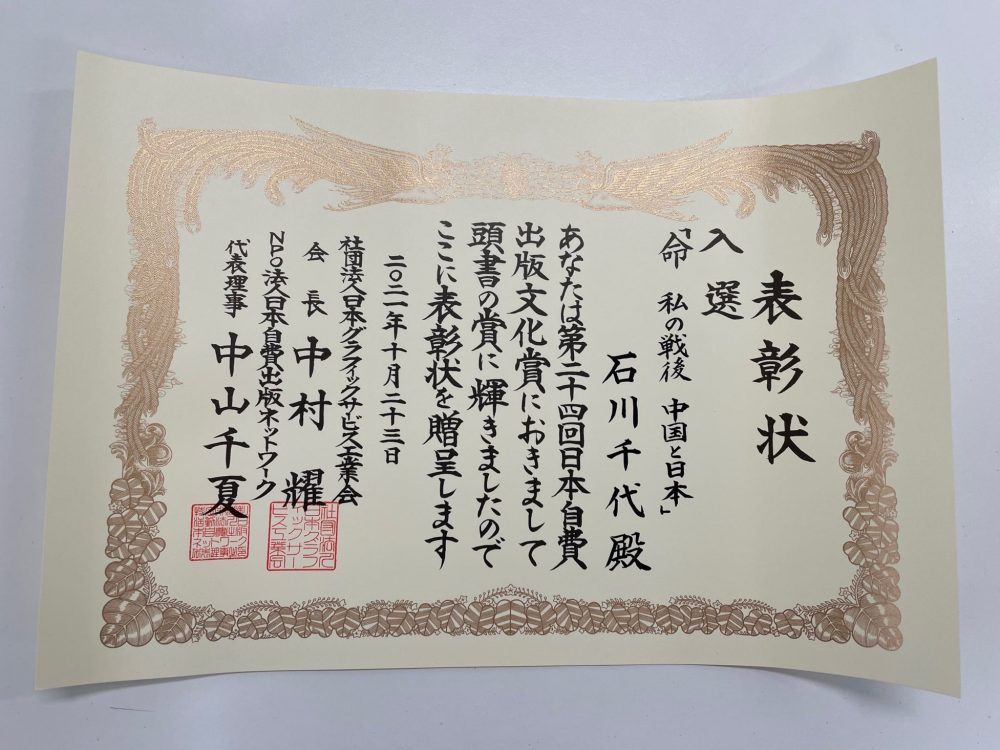 表彰状
入選
「命 私の戦後 中国と日本」
石川千代殿
あなたは第二十四回日本自費
出版文化賞におきまして
頭書の賞に輝きましたので
ここに表彰状を贈呈します
二〇二一年十月二十三日
社団法人日本グラフィックサービス工業会
会長 中村耀
NPO法人日本自費出版ネットワーク
代表理事 中山千夏
社団法人
日本グラフ
ィックサー
ビス工業会